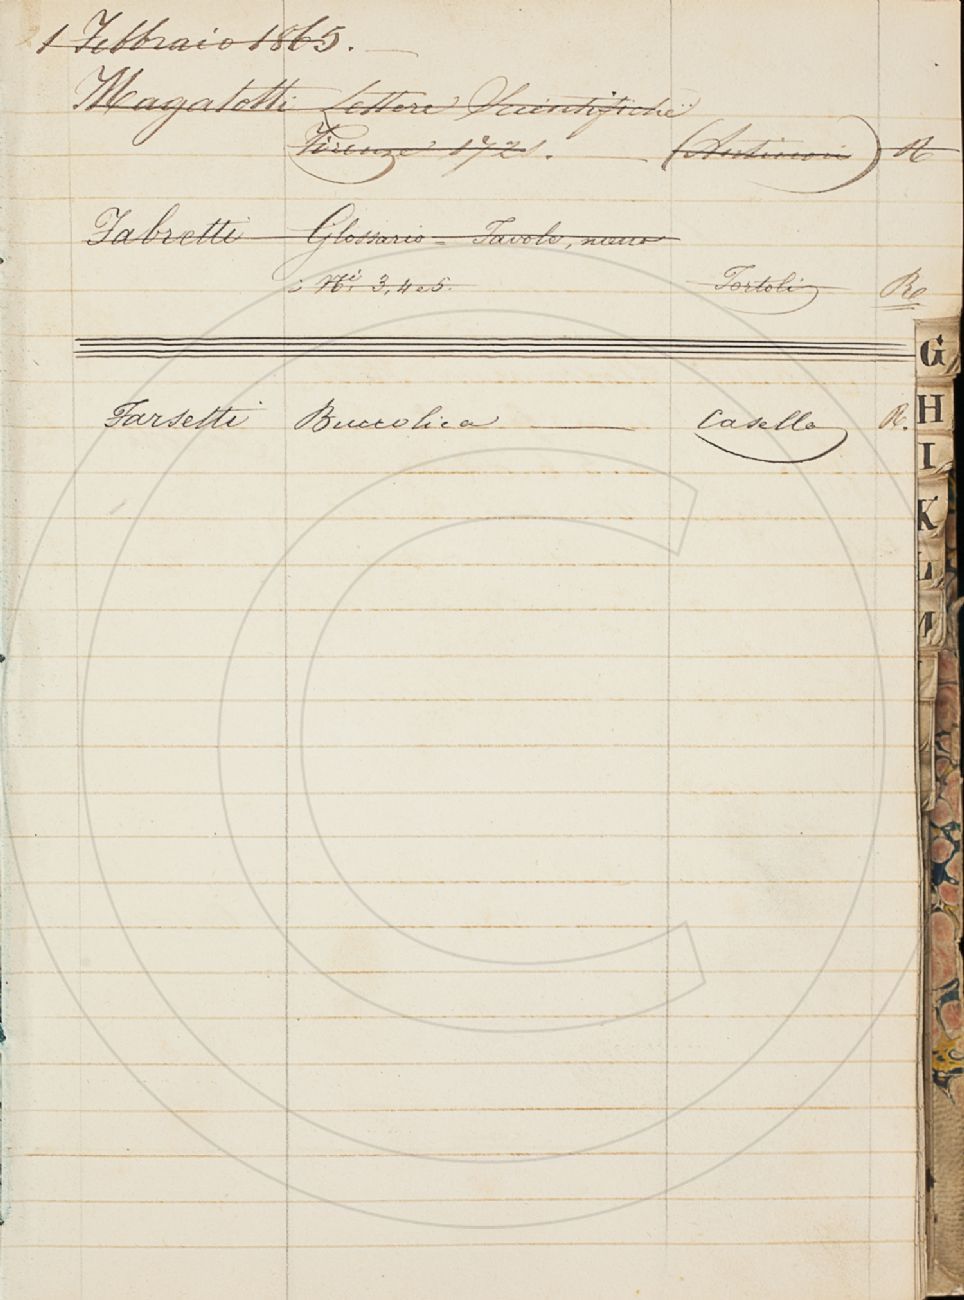 1 Febbraio 1865.
Magalotti Lettere Scientifiche
Firenze 1721. (Antinori) R
Fabretti Glossario - Tavole, meno
i Ni. 3, 4 e 5. Tortoli Re
G
Farsetti Buccolica Casella R.
H
I
K
L
M